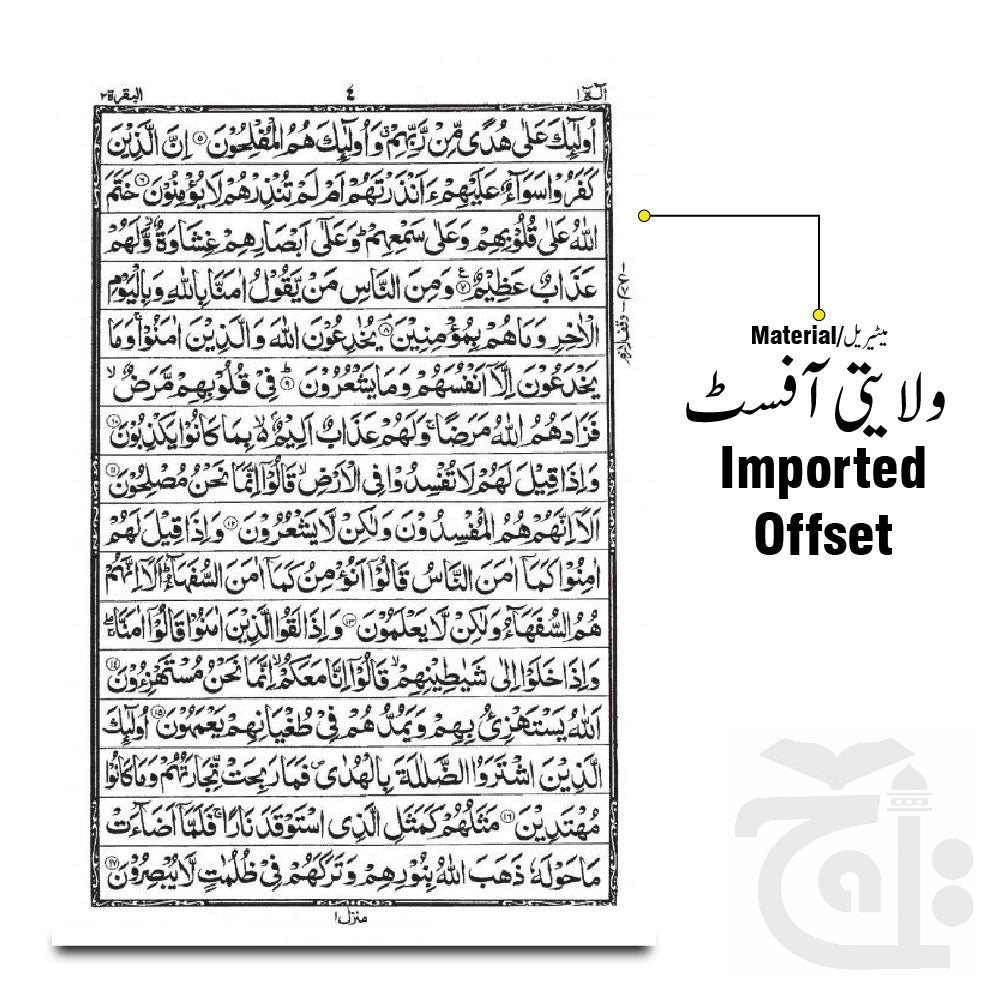 الٓمّٓ ١
٤
البقرة ٢
اُولٰٓئِكَ عَلٰى هُدًى مِّنْ رَّبِّهِمْ ۗ وَاُولٰٓئِكَ هُمُ الْمُفْلِحُوْنَ ۝۵ اِنَّ الَّذِيْنَ
كَفَرُوْا سَوَآءٌ عَلَيْهِمْ ءَاَنْذَرْتَهُمْ اَمْ لَمْ تُنْذِرْهُمْ لَا يُؤْمِنُوْنَ ۝۶ خَتَمَ
اللّٰهُ عَلٰى قُلُوْبِهِمْ وَعَلٰى سَمْعِهِمْ ؕ وَعَلٰٓى اَبْصَارِهِمْ غِشَاوَةٌ ؗ وَّلَهُمْ
عَذَابٌ عَظِيْمٌ ۝۷ وَمِنَ النَّاسِ مَنْ يَّقُوْلُ اٰمَنَّا بِاللّٰهِ وَبِالْيَوْمِ
الْاٰخِرِ وَمَا هُمْ بِمُؤْمِنِيْنَ ۝۸ يُخٰدِعُوْنَ اللّٰهَ وَالَّذِيْنَ اٰمَنُوْا ۚ وَمَا
يَخْدَعُوْنَ اِلَّاۤ اَنْفُسَهُمْ وَمَا يَشْعُرُوْنَ ۝۹ فِيْ قُلُوْبِهِمْ مَّرَضٌ ۙ
فَزَادَهُمُ اللّٰهُ مَرَضًا ۚ وَلَهُمْ عَذَابٌ اَلِيْمٌۢ ۙ بِمَا كَانُوْا يَكْذِبُوْنَ ۝۱۰
وَاِذَا قِيْلَ لَهُمْ لَا تُفْسِدُوْا فِي الْاَرْضِ ۙ قَالُوْۤا اِنَّمَا نَحْنُ مُصْلِحُوْنَ ۝۱۱
اَلَاۤ اِنَّهُمْ هُمُ الْمُفْسِدُوْنَ وَلٰكِنْ لَّا يَشْعُرُوْنَ ۝۱۲ وَاِذَا قِيْلَ لَهُمْ
اٰمِنُوْا كَمَاۤ اٰمَنَ النَّاسُ قَالُوْۤا اَنُؤْمِنُ كَمَاۤ اٰمَنَ السُّفَهَآءُ ؕ اَلَاۤ اِنَّهُمْ
هُمُ السُّفَهَآءُ وَلٰكِنْ لَّا يَعْلَمُوْنَ ۝۱۳ وَاِذَا لَقُوا الَّذِيْنَ اٰمَنُوْا قَالُوْۤا اٰمَنَّا ۚۖ
وَاِذَا خَلَوْا اِلٰى شَيٰطِيْنِهِمْ ۙ قَالُوْۤا اِنَّا مَعَكُمْ ۙ اِنَّمَا نَحْنُ مُسْتَهْزِءُوْنَ ۝۱۴
اَللّٰهُ يَسْتَهْزِئُ بِهِمْ وَيَمُدُّهُمْ فِيْ طُغْيَانِهِمْ يَعْمَهُوْنَ ۝۱۵ اُولٰٓئِكَ
الَّذِيْنَ اشْتَرَوُا الضَّلٰلَةَ بِالْهُدٰى ۪ فَمَا رَبِحَتْ تِّجَارَتُهُمْ وَمَا كَانُوْا
مُهْتَدِيْنَ ۝۱۶ مَثَلُهُمْ كَمَثَلِ الَّذِي اسْتَوْقَدَ نَارًا ۚ فَلَمَّاۤ اَضَآءَتْ
مَا حَوْلَهٗ ذَهَبَ اللّٰهُ بِنُوْرِهِمْ وَتَرَكَهُمْ فِيْ ظُلُمٰتٍ لَّا يُبْصِرُوْنَ ۝۱۷
منزل ١
Material/میٹیریل
ولایتی آفسٹ
Imported
Offset